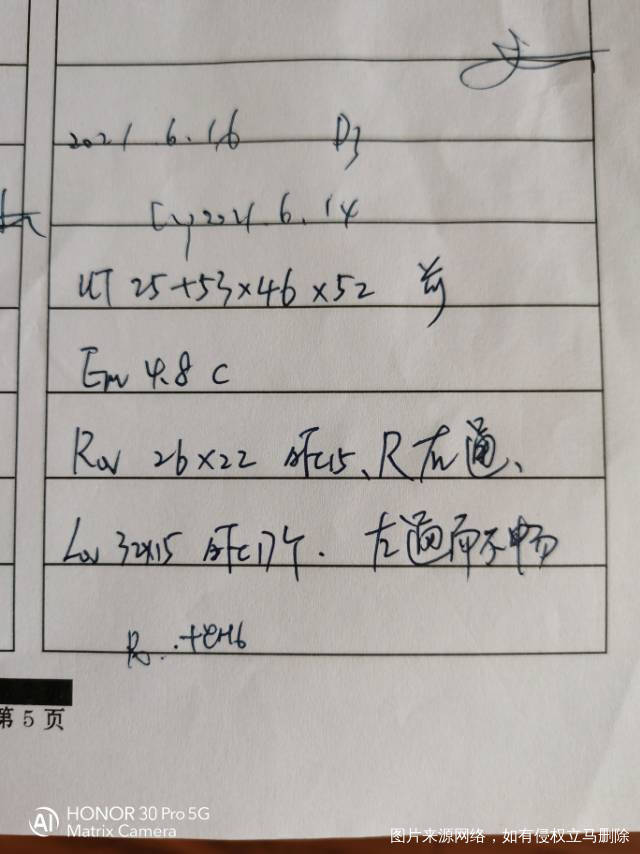 2021.6.16 D3
2021.6.14
UT 25+53×46×52
Em 4.8 C
Rov 26×22 AFC15、R 通、
Lov 32×15 AFC17个. 左通而不畅
第 5 页
HONOR 30 Pro 5G
Matrix Camera
图片来源网络，如有侵权立马删除